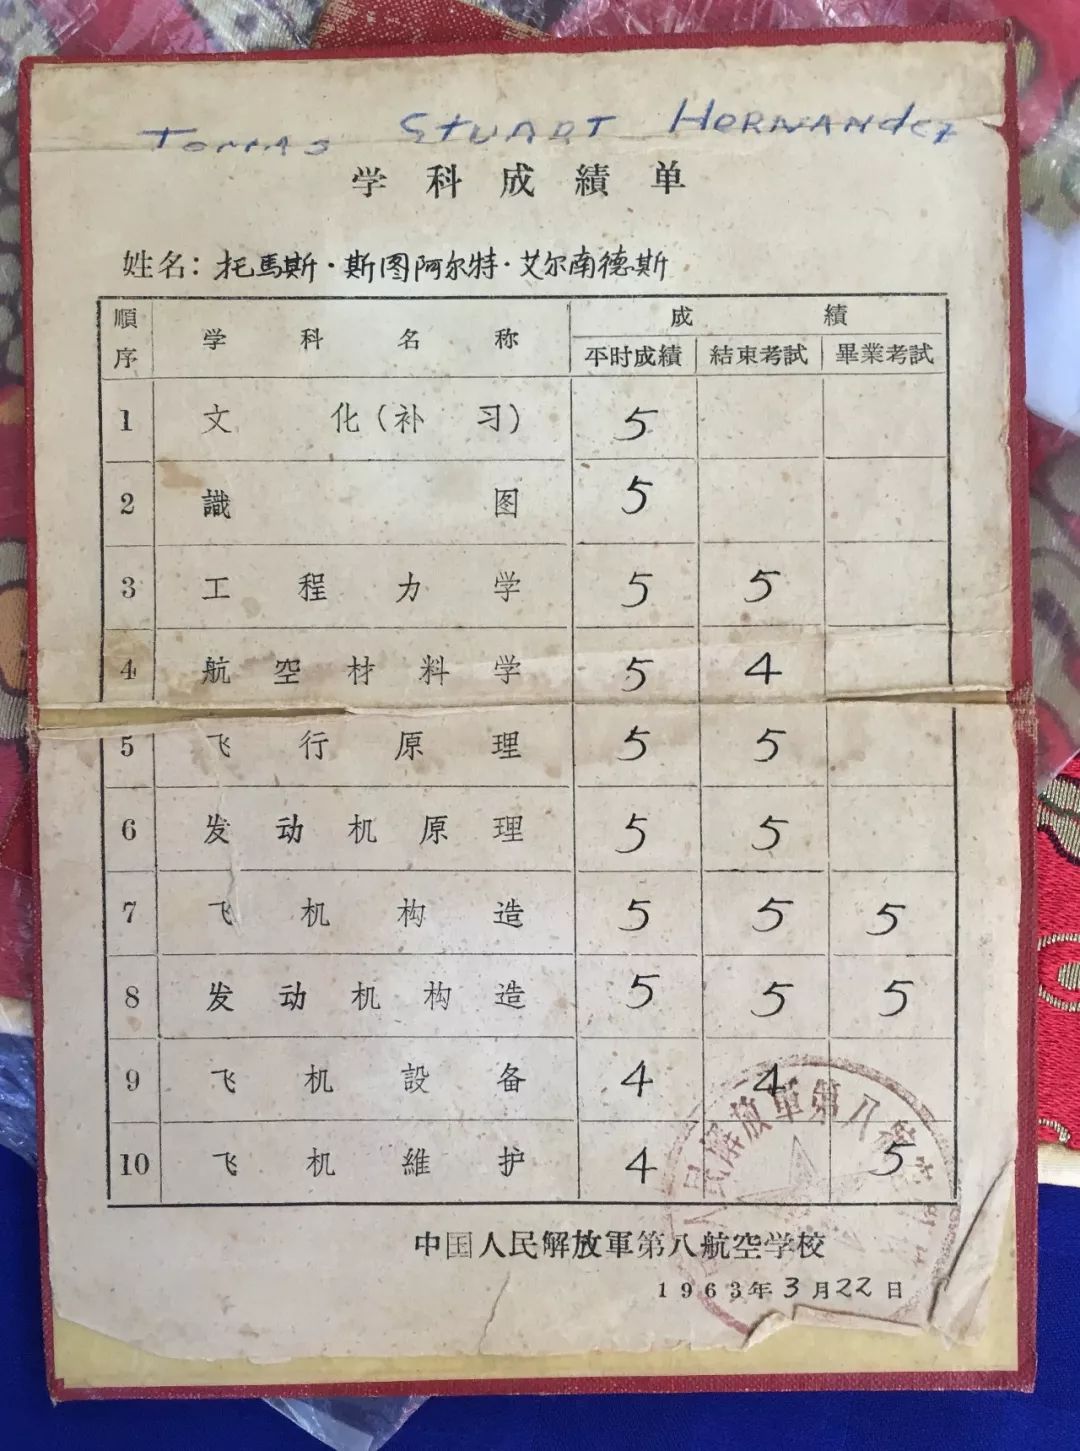 TOMAS STUART HERNANdEZ
学科成績单
姓名：托馬斯·斯图阿尔特·艾尔南德斯
順序 学科名称 成績
平时成績 結束考試 畢業考試
1 文化(补习) 5
2 識图 5
3 工程力学 5 5
4 航空材料学 5 4
5 飞行原理 5 5
6 发动机原理 5 5
7 飞机构造 5 5 5
8 发动机构造 5 5 5
9 飞机設备 4 4
10 飞机維护 4 5
人民解放軍第八航空
中国人民解放軍第八航空学校
1963年3月22日